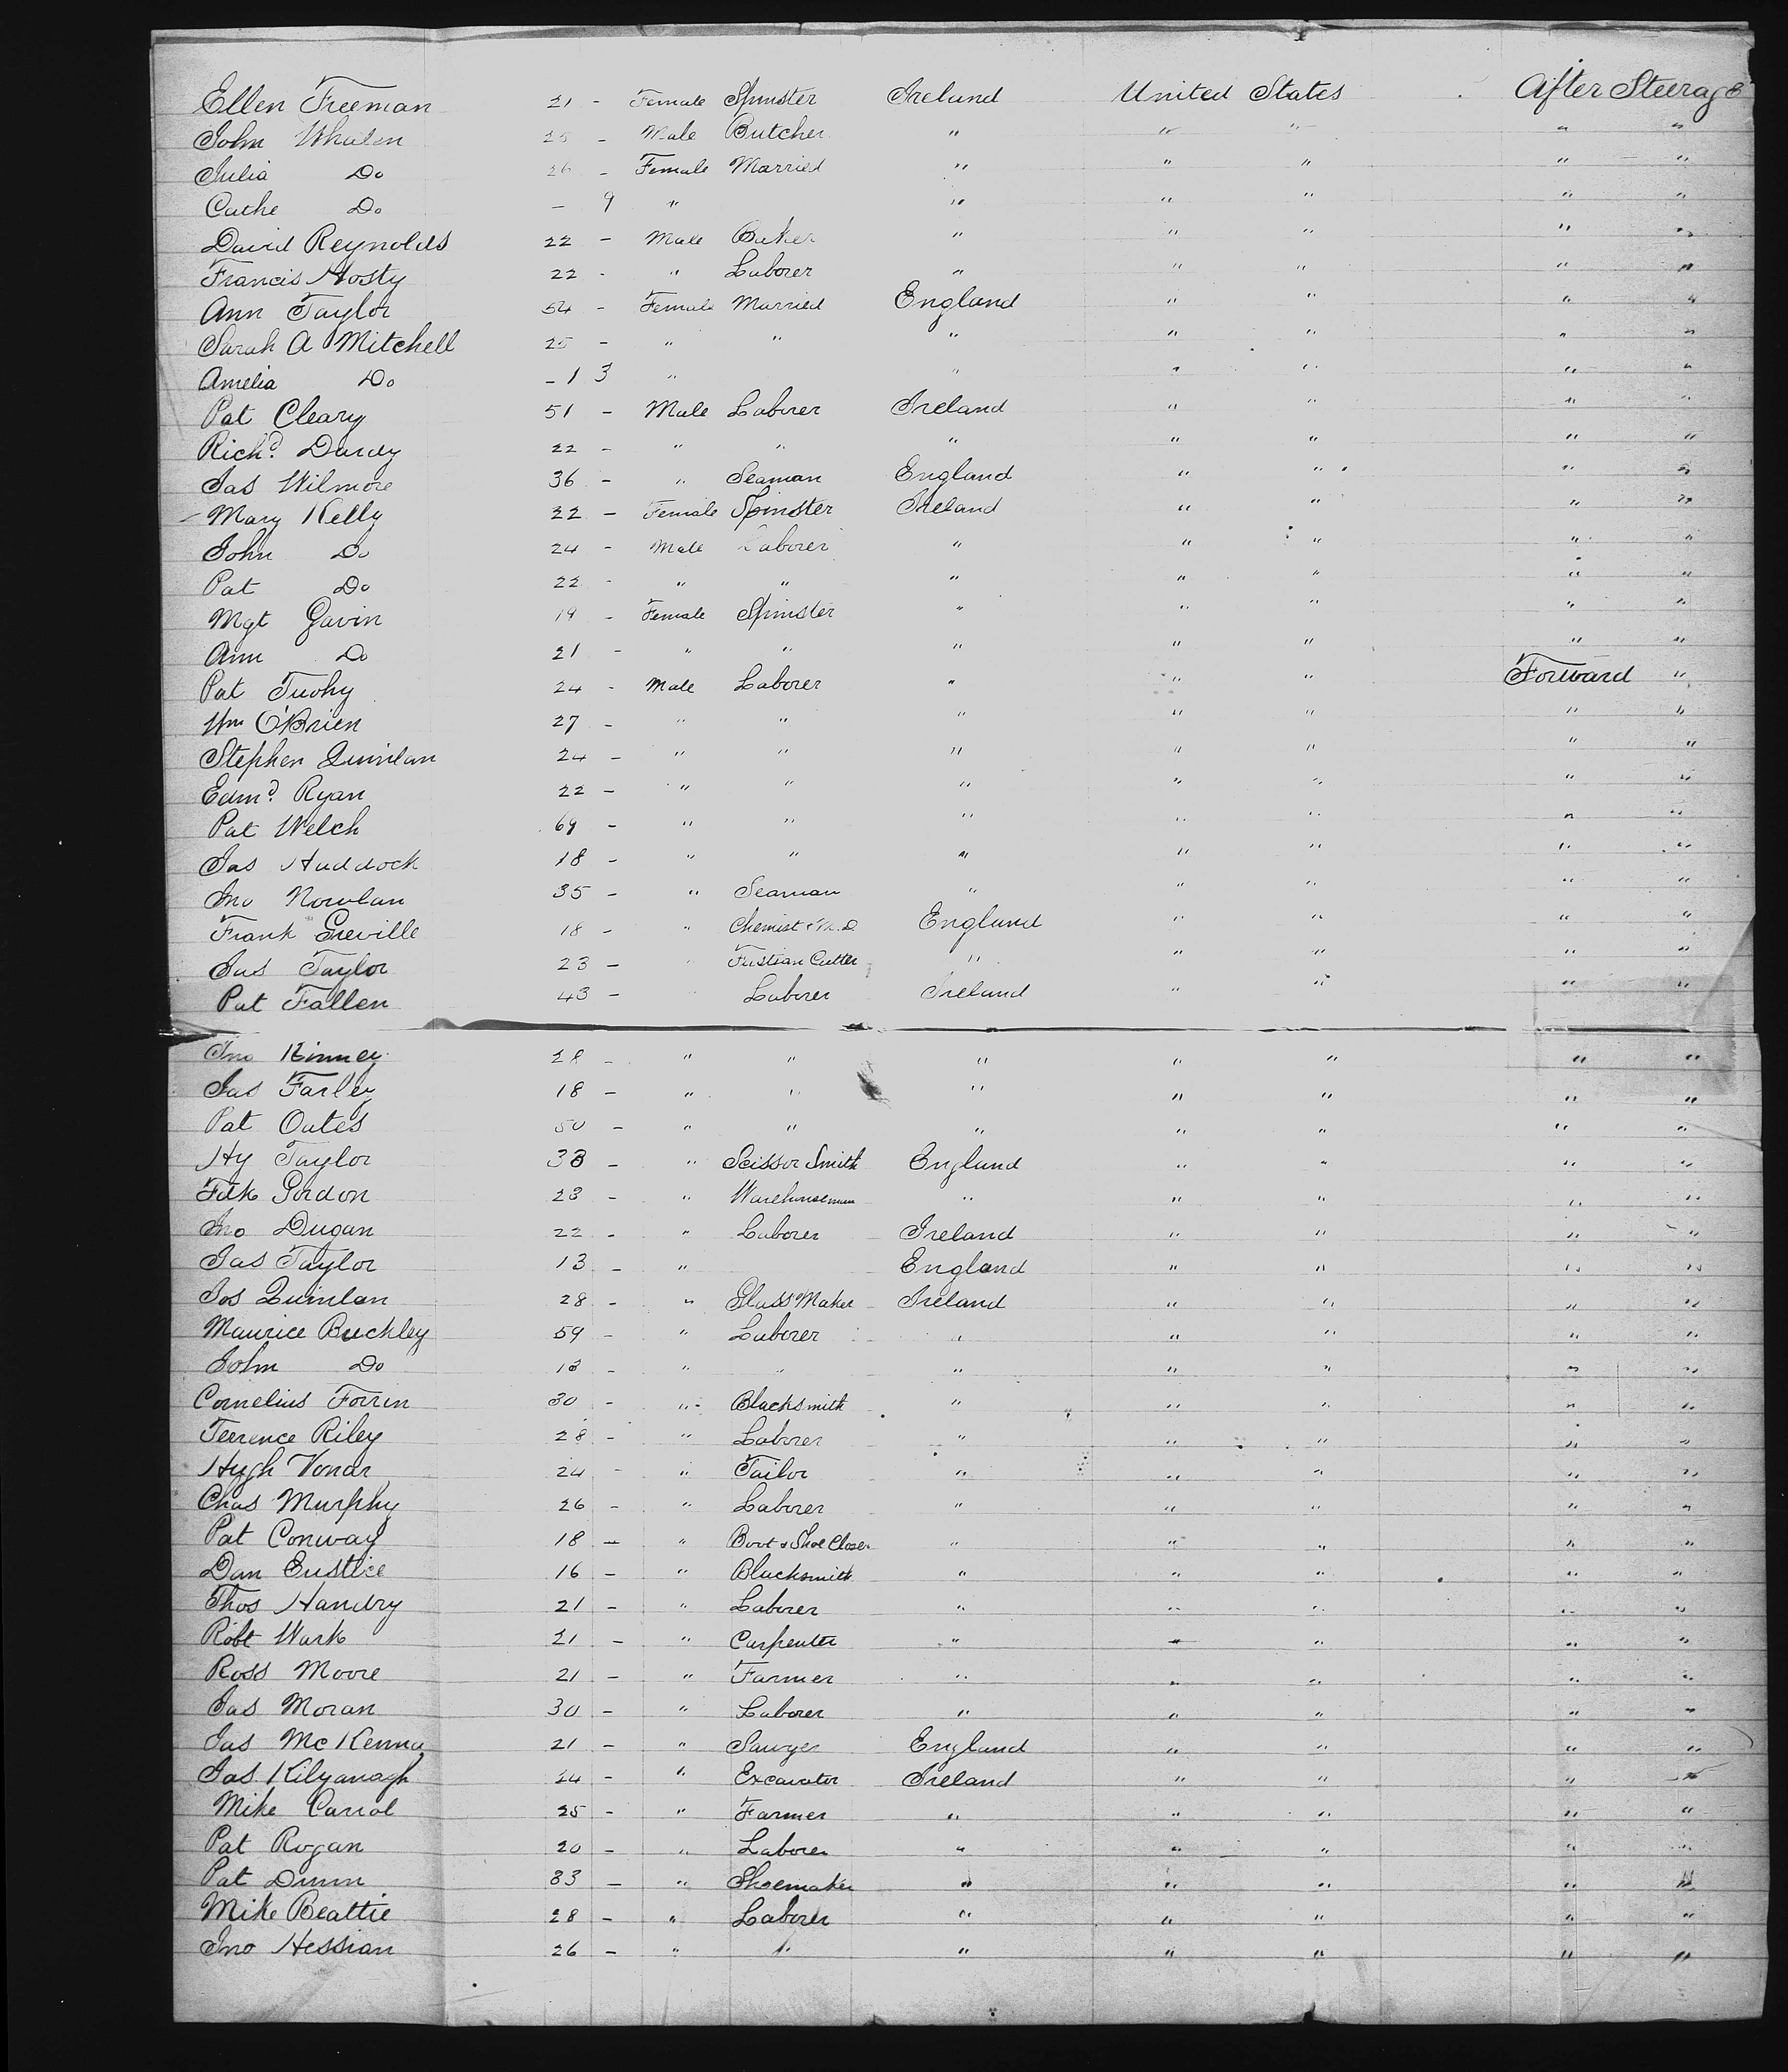 Ellen Freeman 21 - Female Spinster Ireland United States After Steerage
John Whalen 25 - Male Butcher " " " " "
Julia Do 26 - Female Married " " " " "
Cathe Do - 9 " " " " " "
David Reynolds 22 - Male Baker " " " " "
Francis Hosty 22 - " Laborer " " " " "
Ann Taylor 54 - Female Married England " " " "
Sarah A Mitchell 25 - " " " " " " "
Amelia Do - 1 3 " " " " " "
Pat Cleary 51 - Male Laborer Ireland " " " "
Richd. Darcy 22 - " " " " " " "
Jas Wilmore 36 - " Seaman England " " " "
Mary Kelly 22 - Female Spinster Ireland " " " "
John Do 24 - Male Laborer " " " " "
Pat Do 22 - " " " " " " "
Mgt Gavin 19 - Female Spinster " " " " "
Ann Do 21 - " " " " " " "
Pat Tuohy 24 - Male Laborer " " " Forward "
Wm O'Brien 27 - " " " " " " "
Stephen Quinlan 24 - " " " " " " "
Edmd. Ryan 22 - " " " " " " "
Pat Welch 69 - " " " " " " "
Jas Haddock 18 - " " " " " " "
Jno Nowlan 35 - " Seaman " " " " "
Frank Greville 18 - " Chemist & M.D. England " " " "
Jas Taylor 23 - " Fustian Cutter " " " " "
Pat Fallen 43 - Laborer Ireland " " " "
Jno Kinney 28 - " " " " " " "
Jas Farley 18 - " " " " " " "
Pat Oates 50 - " " " " " " "
Hy Taylor 38 - " Scissor Smith England " " " "
Fdk Gordon 23 - " Warehouseman " " " " "
Jno Dugan 22 - " Laborer Ireland " " " "
Jas Taylor 13 - " England " " " "
Jos Quinlan 28 - " Glass Maker Ireland " " " "
Maurice Buckley 59 - " Laborer " " " " "
John Do 18 - " " " " " " "
Cornelius Forrin 30 - " Blacksmith " " " " "
Terrence Riley 28 - " Laborer " " " " "
Hugh Vonar 24 - " Tailor " " " " "
Chas Murphy 26 - " Laborer " " " " "
Pat Conway 18 - " Boot & Shoe Closer " " " " "
Dan Eustice 16 - " Blacksmith " " " " "
Thos Handry 21 - " Laborer " " " " "
Robt Wark 21 - " Carpenter " " " " "
Ross Moore 21 - " Farmer " " " " "
Jas Moran 30 - " Laborer " " " " "
Jas McKenna 21 - " Sawyer England " " " "
Jas. Kilyanagh 24 - " Excavator Ireland " " " "
Mike Carrol 25 - " Farmer " " " " "
Pat Rogan 20 - " Laborer " " " " "
Pat Dunn 33 - " Shoemaker " " " " "
Mike Beattie 28 - " Laborer " " " " "
Jno Hessian 26 - " " " " " " "